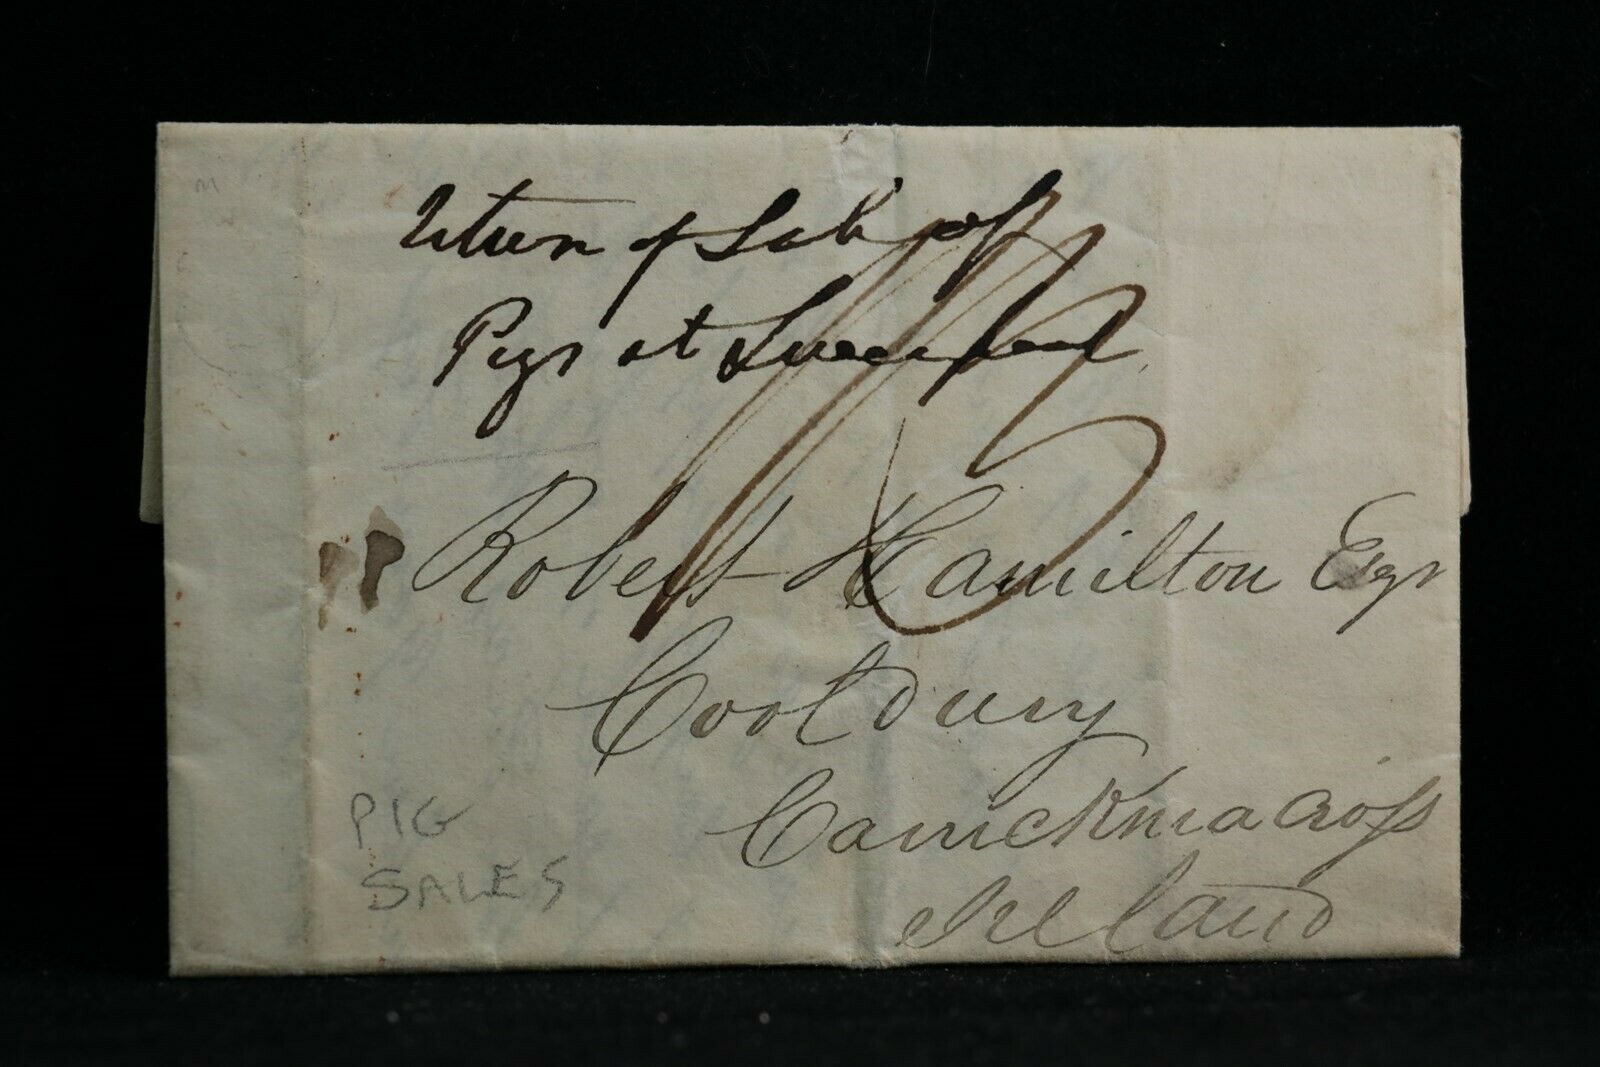 Return of Sale of
Pigs at Liverpool
1/3
Robert Hamilton Esqr
Cooldurry
Carrickmacross
Ireland
PIG
SALES